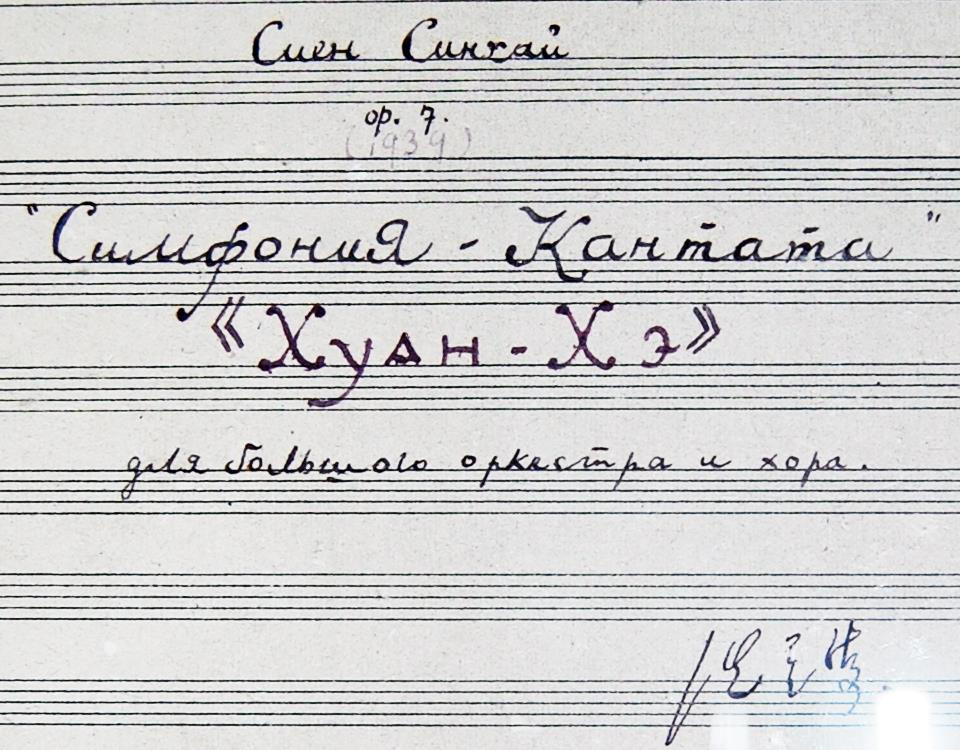 Сиен Синхай
op. 7.
(1939)
"Симфония - Кантата"
《Хуан-Хэ》
для большого оркестра и хора.
冼星海